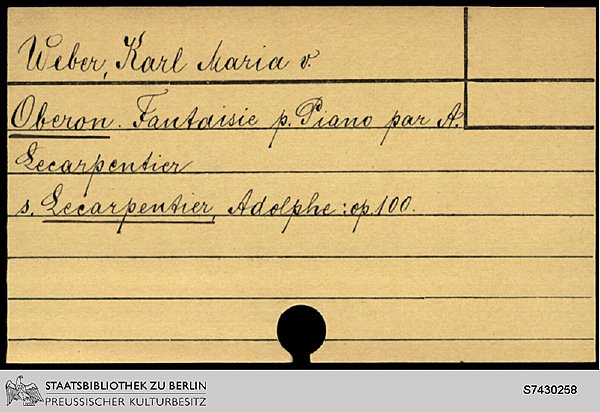 Weber, Karl Maria v.
Oberon. Fantaisie p. Piano par A.
Lecarpentier
s. Lecarpentier, Adolphe: op. 100.
STAATSBIBLIOTHEK ZU BERLIN
PREUSSISCHER KULTURBESITZ
S7430258